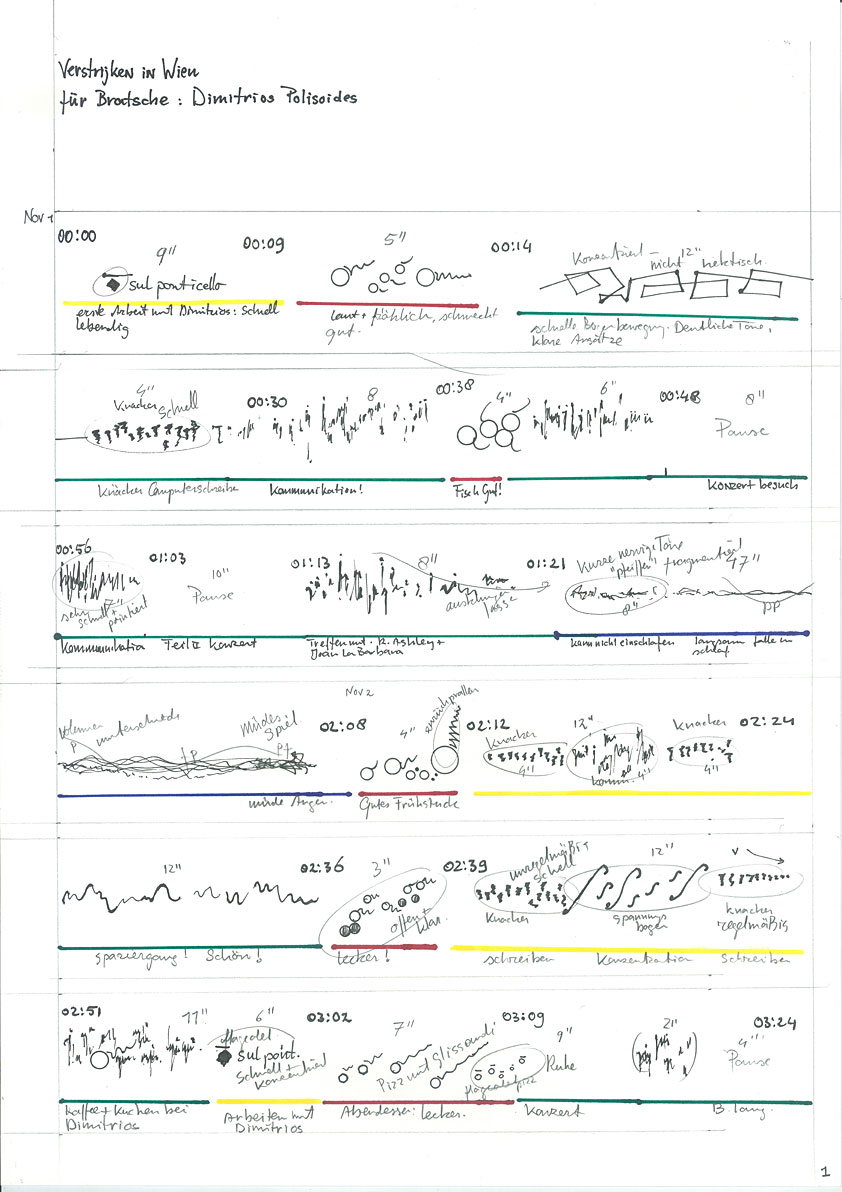 Verstrijken in Wien
für Bratsche: Dimitrios Polisoides
Nov 1
00:00 9" 00:09 5" 00:14 12"
Konzentriert – nicht hektisch.
sul ponticello
erste Arbeit mit Dimitrios: Schnell
lebendig
laut + fröhlich, schmeckt
gut.
schnelle Bogenbewegung. Deutliche Töne,
klare Ansätze
4" 00:30 8 00:38 4" 6" 00:48 8"
Knacker schnell
Pause
Knäcker Computerschreibe
Kommunikation!
Fisch Gut!
Konzert besuch
00:56 01:03 10" 01:13 8" 01:21 47"
Kurze nervige Töne
"pfeifen" fragmentiert
Pause
sehr
schnell +
pointiert
8"
pp
Kommunikation Teil II Konzert
Treffen mit R. Ashley +
Joan La Barbara
kann nicht einschlafen
langsam falle in
schlaf
Nov 2
Volumen unterschiede
P
müdes
Spiel
P
02:08 4" 02:12 12" 02:24
zurückprallen
Knacker
4"
komm. 4"
Knacker
4"
müde Augen.
Gutes Frühstück
12" 02:36 3" 02:39 12"
unregelmäßig
schnell
V
offen +
klar.
Knacker
spannungs
bogen
knacker
regelmäßig
spaziergang! Schön!
lecker!
schreiben Konzentration Schreiben
02:51 11" 6" 03:02 7" 03:09 9" 2" 03:24
4"
flageolet
sul pont.
Schnell +
Konzentriert
Pizz mit Glissandi
flageoletpizz
Ruhe
Pause
Kaffee + Kuchen bei
Dimitrios
Arbeiten mit
Dimitrios
Abendessen: Lecker.
Konzert
B. Lang.
1